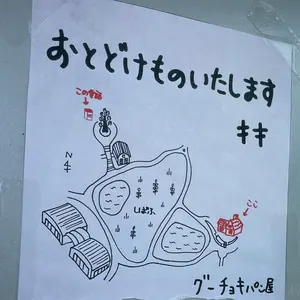 おとどけものいたします
キキ
この看板
N
しばふ
ここ
グーチョキパン屋